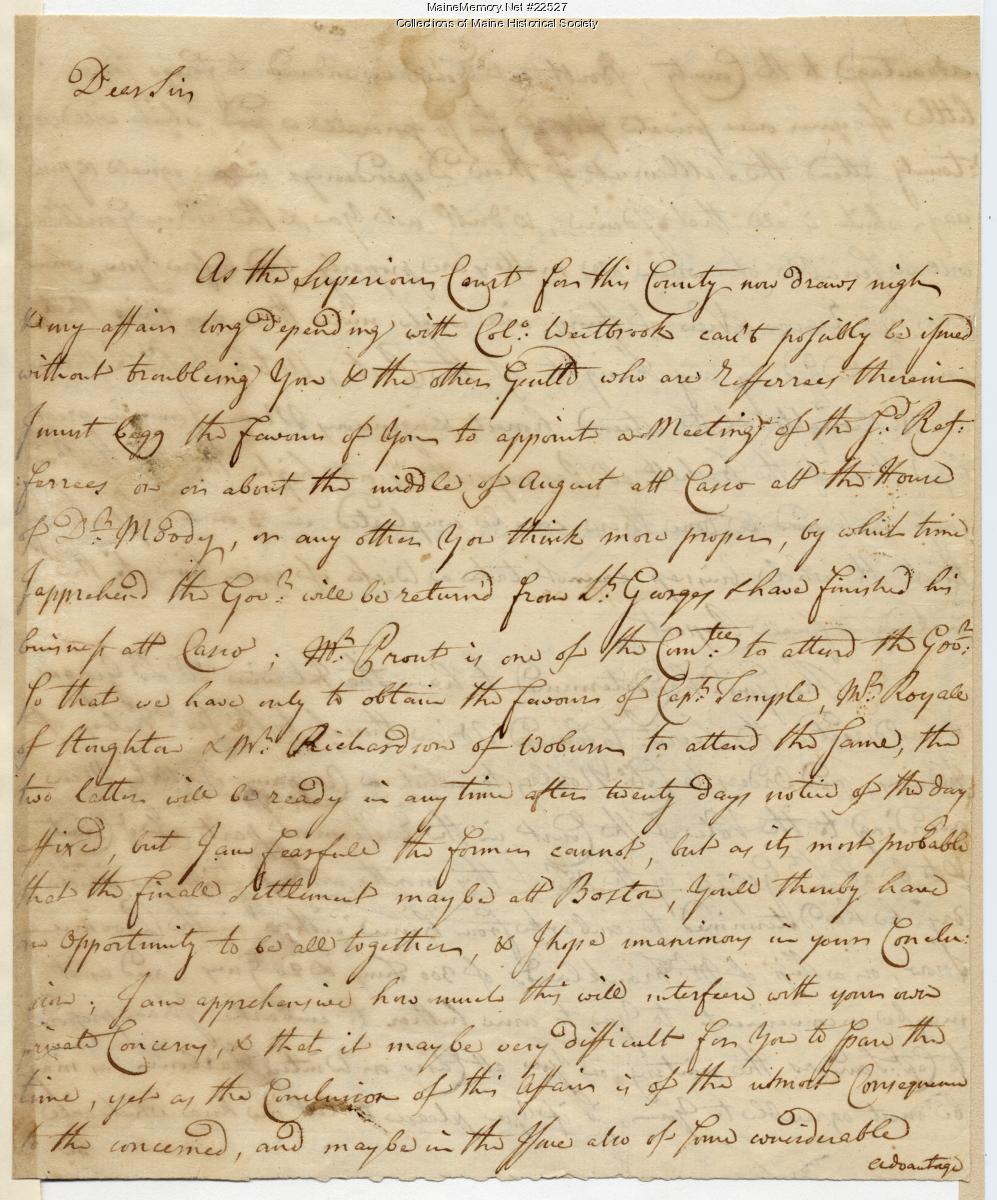 MaineMemory.Net #22527
Collections of Maine Historical Society
Dear Sir
As the Superiour Court for this County now draws nigh
& my affair long depending with Colo. Westbrook can't possibly be issued
without troubleing You & the other Gentld who are Refferrees therein
I must begg the favour of You to appoint a Meeting of the Sd. Ref:
ferrees on or about the middle of August att Casco att the House
of Dr. Moody, or any other You think more proper, by which time
I apprehend the Govr. will be return'd from St. Georges & have finished his
buisness att Casco; Mr. Prout is one of the Comtee. to attend the Govr:
So that we have only to obtain the favour of Capt. Temple, Mr. Royale
of Stoughton & Mr. Richardson of Woburn to attend the Same, the
two latter will be ready in any time after twenty days notice of the day
affixed, but I am fearfull the former cannot, but as its most probable
that the finall Settlement maybe att Boston, You'll thereby have
an Opportunity to be all together, & I hope unanimous in your Conclu:
sion; I am apprehensive how much this will interfere with your own
private Concerns, & that it maybe very difficult for You to Spare the
time, yet as the Conclusion of this Affair is of the utmost Consequence
to the concerned, and maybe in the Issue also of Some considerable
advantage